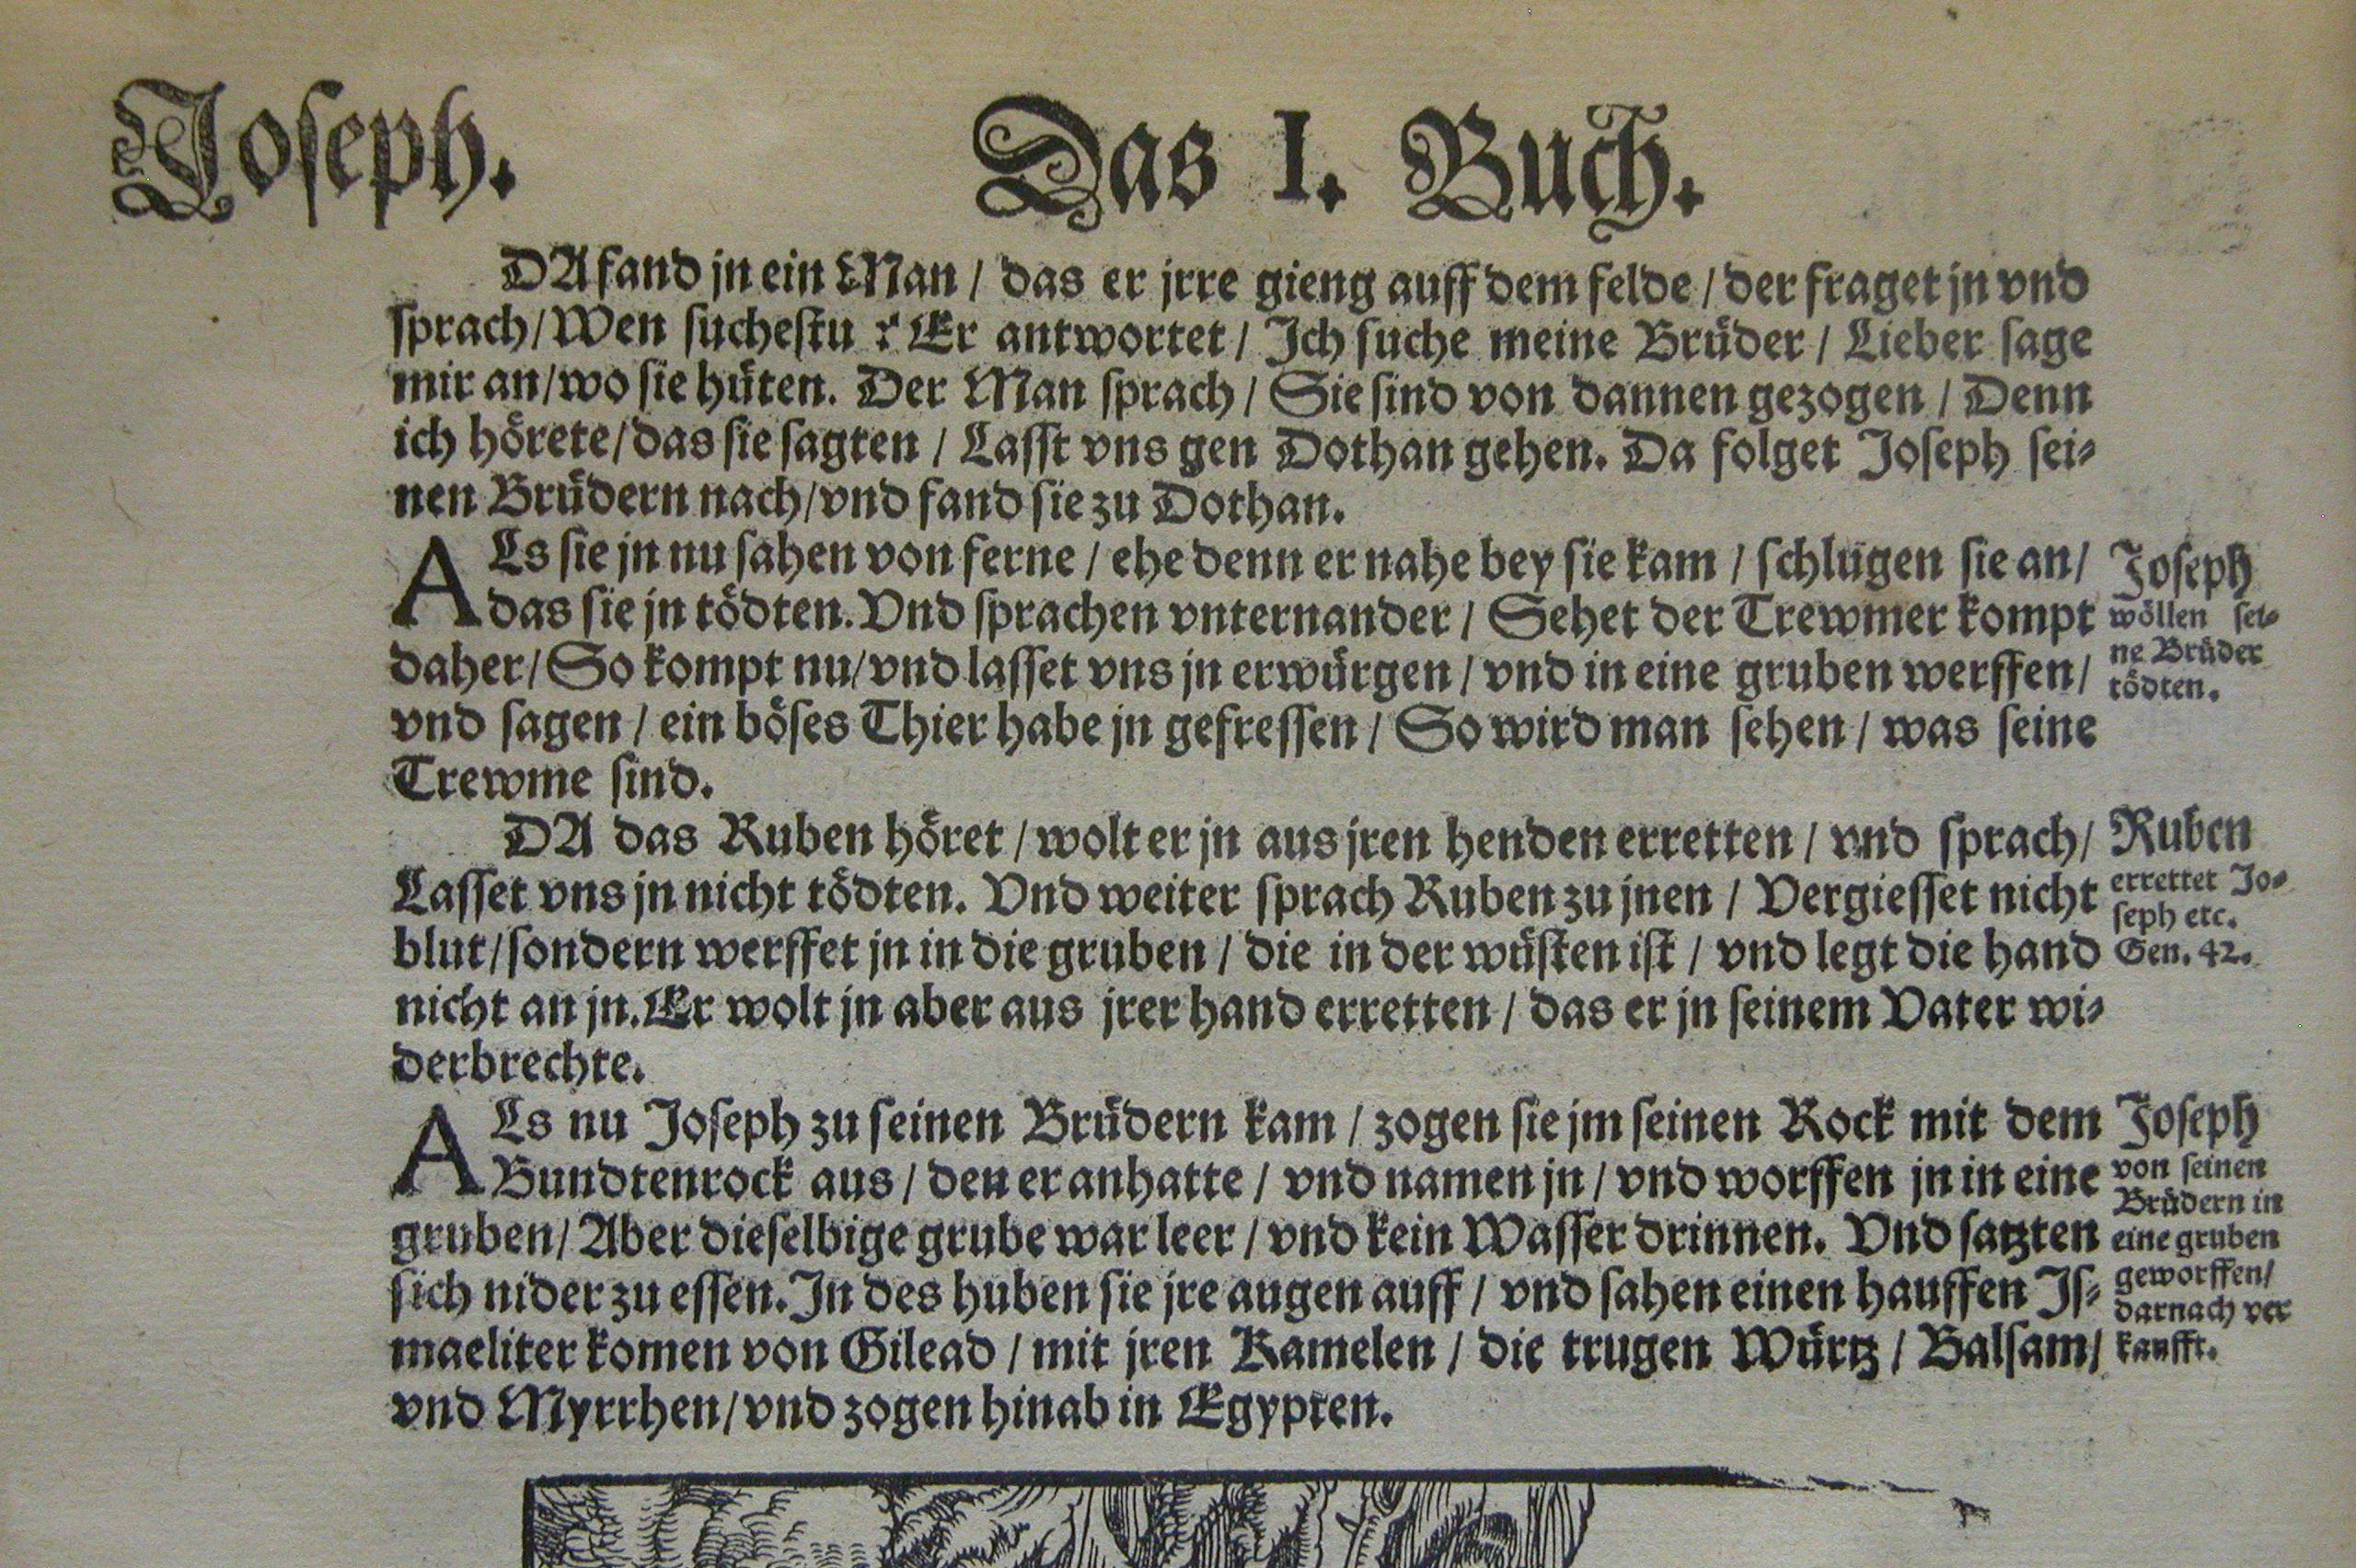 Joseph.
Das I. Buch.
DA fand jn ein Man / das er jrre gieng auff dem felde / der fraget jn vnd
sprach / Wen suchestu ? Er antwortet / Ich suche meine Brüder / Lieber sage
mir an / wo sie hüten. Der Man sprach / Sie sind von dannen gezogen / Denn
ich hörete / das sie sagten / Lasst vns gen Dothan gehen. Da folget Joseph sei-
nen Brüdern nach / vnd fand sie zu Dothan.
ALs sie jn nu sahen von ferne / ehe denn er nahe bey sie kam / schlugen sie an /
das sie jn tödten. Vnd sprachen vnternander / Sehet der Trewmer kompt
daher / So kompt nu / vnd lasset vns jn erwürgen / vnd in eine gruben werffen /
vnd sagen / ein böses Thier habe jn gefressen / So wird man sehen / was seine
Trewme sind.
Joseph
wöllen sei-
ne Brüder
tödten.
DA das Ruben höret / wolt er jn aus jren henden erretten / vnd sprach /
Lasset vns jn nicht tödten. Vnd weiter sprach Ruben zu jnen / Vergiesset nicht
blut / sondern werffet jn in die gruben / die in der wüsten ist / vnd legt die hand
nicht an jn. Er wolt jn aber aus jrer hand erretten / das er jn seinem Vater wi-
derbrechte.
Ruben
errettet Jo-
seph etc.
Gen. 42.
ALs nu Joseph zu seinen Brüdern kam / zogen sie jm seinen Rock mit dem
Bundtenrock aus / den er anhatte / vnd namen jn / vnd worffen jn in eine
gruben / Aber dieselbige grube war leer / vnd kein Wasser drinnen. Vnd satzten
sich nider zu essen. In des huben sie jre augen auff / vnd sahen einen hauffen Is-
maeliter komen von Gilead / mit jren Kamelen / die trugen Würtz / Balsam /
vnd Myrrhen / vnd zogen hinab in Egypten.
Joseph
von seinen
Brüdern in
eine gruben
geworffen /
darnach ver
kaufft.